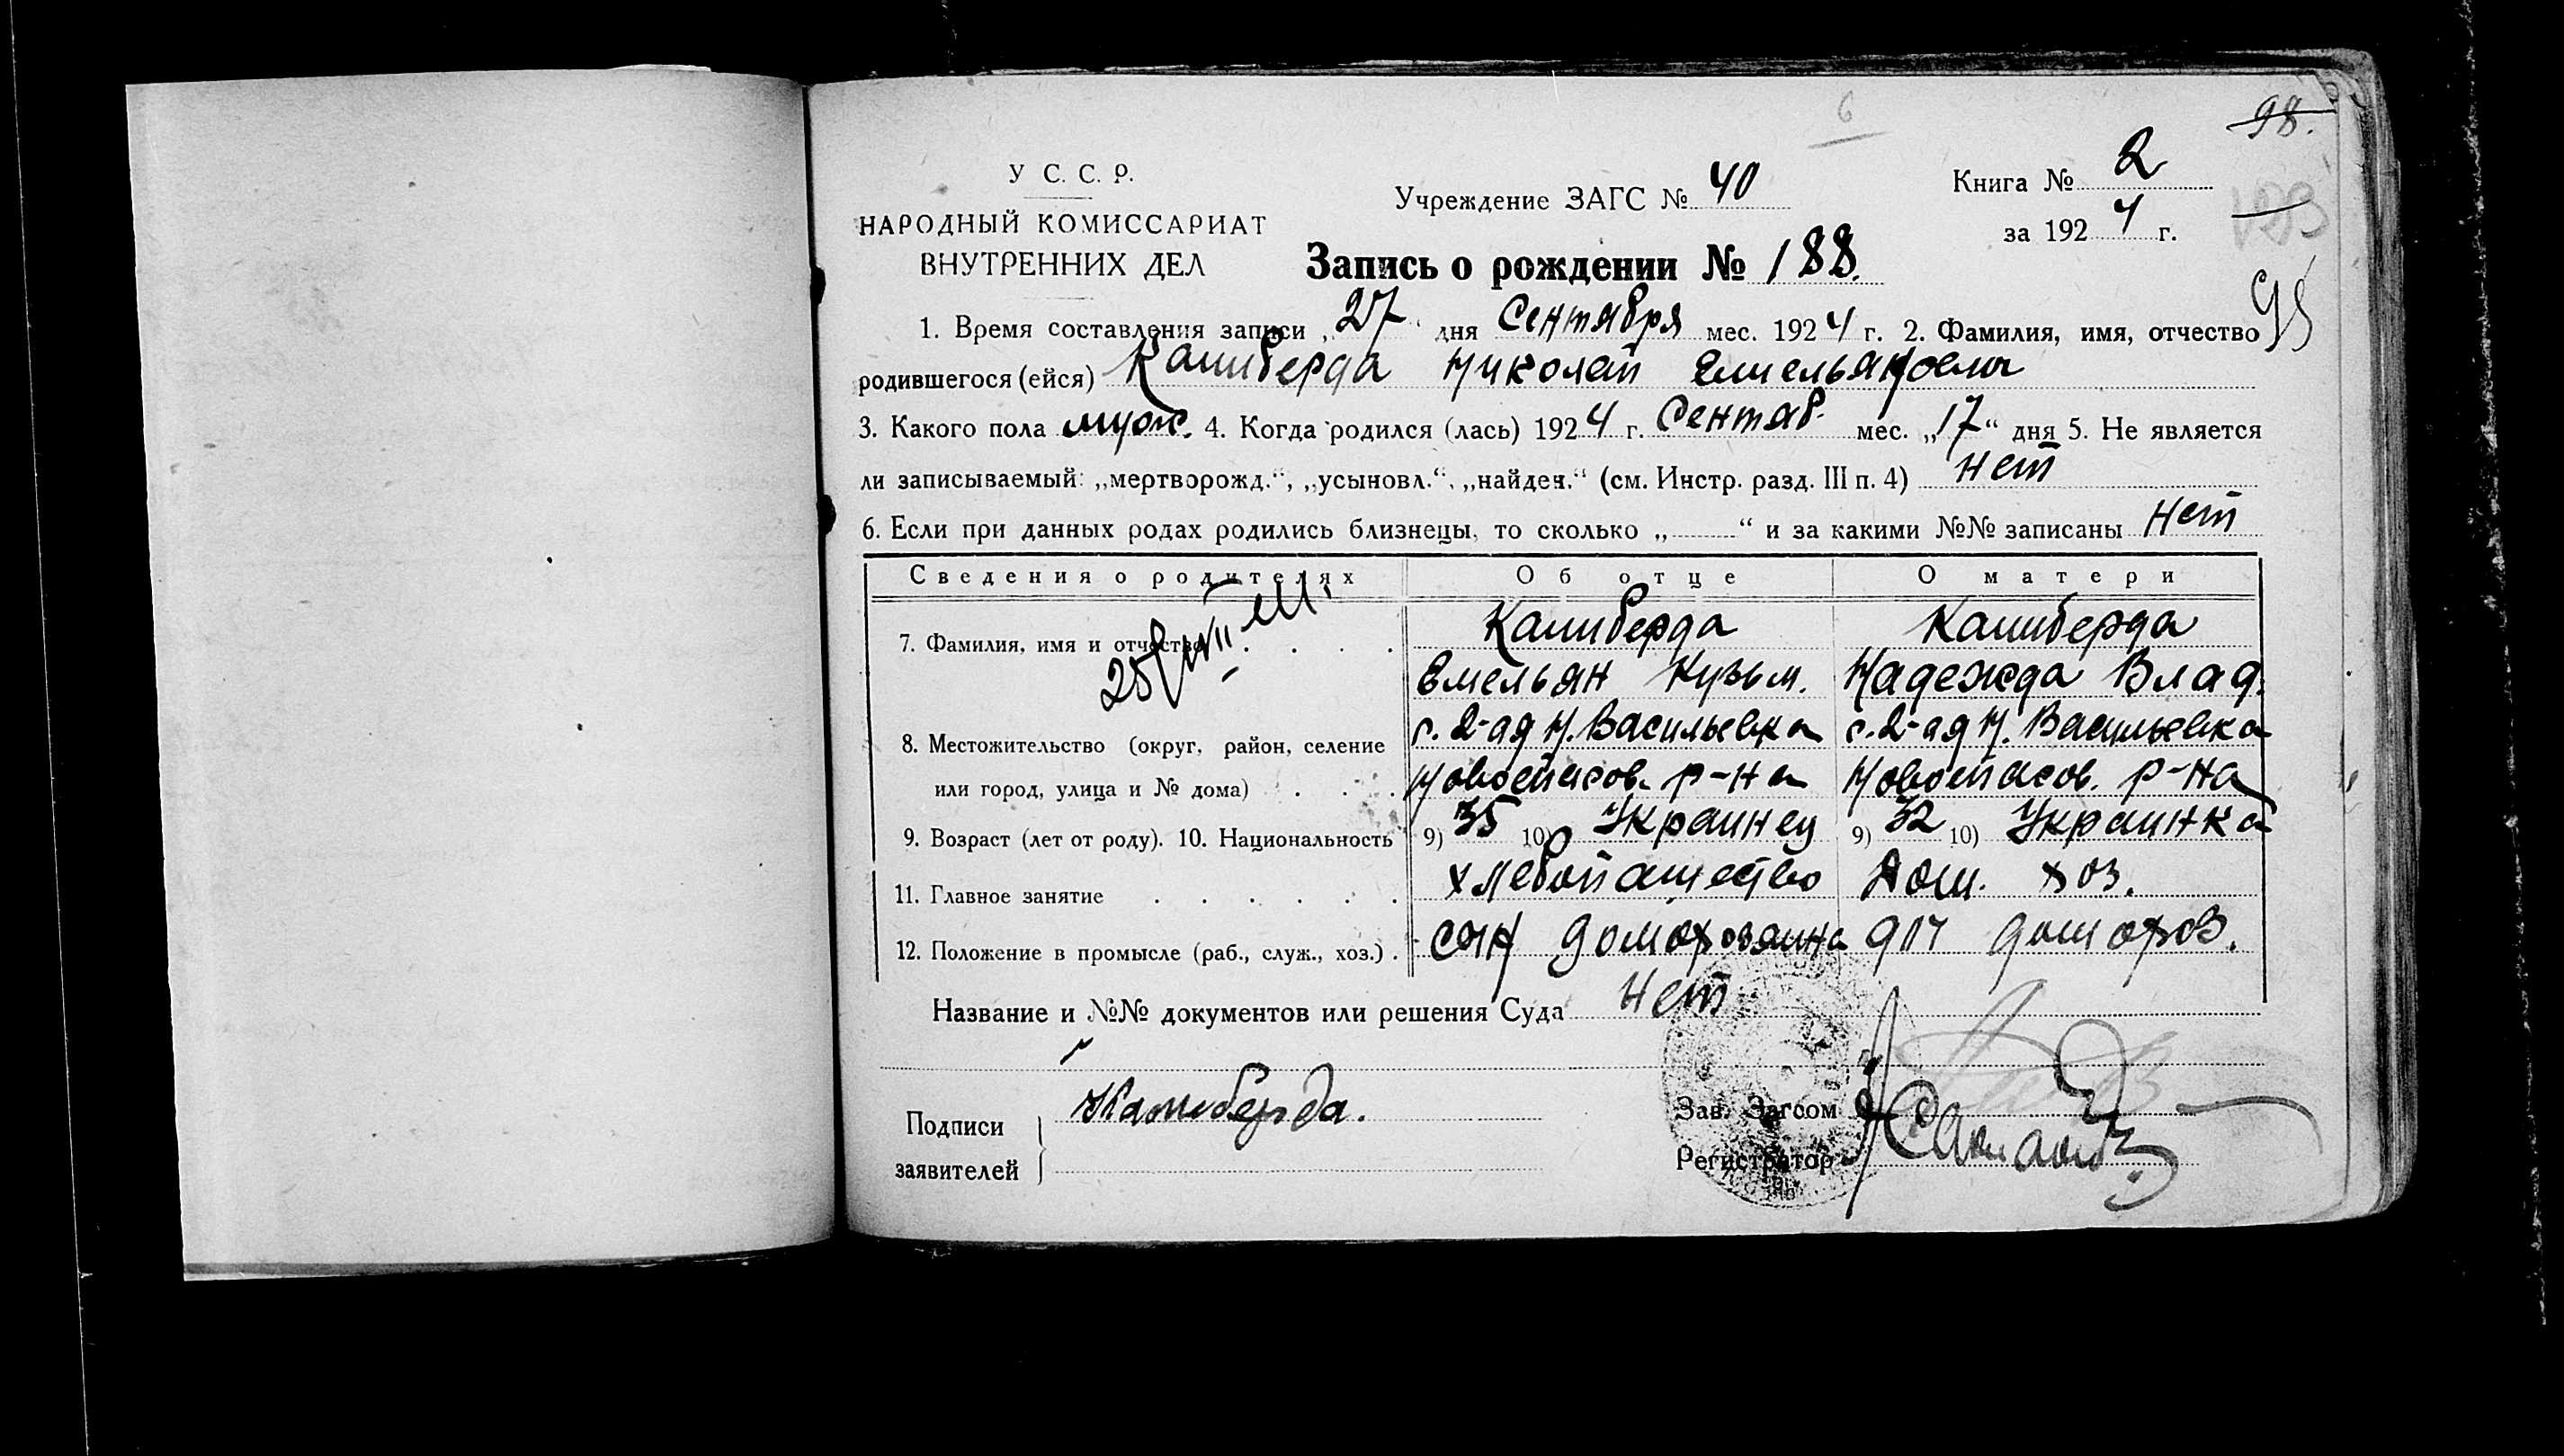 6
98.
У С. С. Р.
НАРОДНЫЙ КОМИССАРИАТ
ВНУТРЕННИХ ДЕЛ
Учреждение ЗАГС № 40
Книга № 2
за 1924 г.
Запись о рождении № 188.
95
1. Время составления записи „27“ дня Сентября мес. 1924 г. 2. Фамилия, имя, отчество
родившегося (ейся) Калиберда Николай
3. Какого пола муж. 4. Когда родился (лась) 1924 г. Сентяб. мес. „17“ дня 5. Не является
ли записываемый: „мертворожд.“, „усыновл.“, „найден.“ (см. Инстр. разд. III п. 4) нет
6. Если при данных родах родились близнецы, то сколько „ “ и за какими №№ записаны нет
Сведения о родителях Об отце О матери
7. Фамилия, имя и отчество Калиберда Калиберда
Емельян Кузьм. Надежда Влад.
с. 2-ая Н. Васильевка с. 2-ая Н. Васильевка
8. Местожительство (округ, район, селение
или город, улица и № дома) Новоспасов. р-на Новоспасов. р-на
9. Возраст (лет от роду). 10. Национальность 9) 35 10) Украинец 9) 32 10) Украинка
11. Главное занятие хлебопашество Дом. хоз.
12. Положение в промысле (раб., служ., хоз.) сын домохозяина доч домохоз.
Название и №№ документов или решения Суда нет
Подписи заявителей Калиберда.
Зав. Загсом
Регистратор